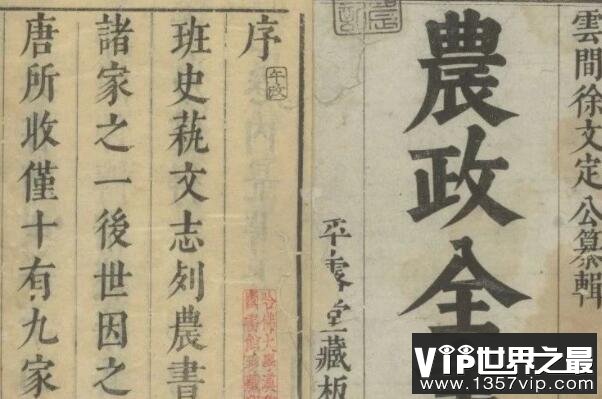 雲間徐文定公纂輯
農政全
平露堂藏板
序
班史蓺文志列農書
諸家之一後世因之
唐所收僅十有九家
VIP世界之最
www.1357vip.com